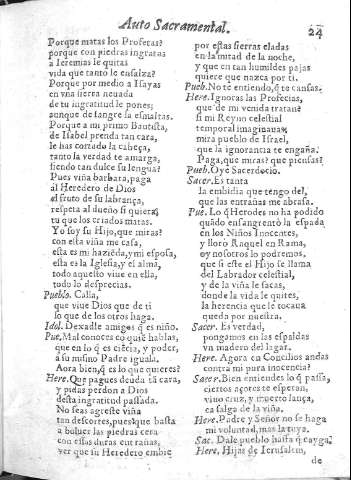 Auto Sacramental. 24
Porque matas los Profetas?
porque con piedras ingratas
a Ieremias le quitas
vida que tanto le ensalza?
Porque por medio a Isayas
en vna sierra neuada
de tu ingratitud le pones;
aunque de sangre la esmaltas.
Porque a mi primo Bautista,
de Isabel prenda tan cara,
le has cortado la cabeça,
tanto la verdad te amarga,
siendo tan dulce su lengua?
Pues viña barbara, paga
al Heredero de Dios
el fruto de su labrança,
respeta al dueño si quiera,
tu que los criados matas.
Yo soy su Hijo, que miras?
con esta viña me casa,
esta es mi haziẽda, y mi esposa,
esta es la Iglesia, y el alma,
todo aquesto viue en ella,
todo lo desprecias.
Pueblo. Calla,
que viue Dios que de ti
lo que de los otros haga.
Idol. Dexadle amigos q̃ es niño.
Pue. Mal conoces co quiẽ hablas,
que en lo q̃ es ciẽcia, y poder,
a su mismo Padre iguala.
Aora bien, q̃ es lo que quieres?
Here. Que pagues deuda tã cara,
y pidas perdon a Dios
desta ingratitud passada.
No seas agreste viña
tan descortes, pues que basta
a boluer las piedras cera
con essas duras entrañas,
ver que su Heredero embie
por estas sierras eladas
en la mitad de la noche,
y que en tan humildes pajas
quiere que nazca por ti.
Pueb. No te entiendo, q̃ te cansas.
Here. Ignoras las Profecias,
que de mi venida tratan?
si mi Reyno celestial
temporal imaginauas,
mira pueblo de Israel,
que la ignorancia te engaña.
Paga, que miras? que piensas?
Pueb. Oye Sacerdocio.
Sacer. Es tanta
la embidia que tengo del,
que las entrañas me abrasa.
Pue. Lo q̃ Herodes no ha podido
quãdo ensangrentò la espada
en los Niños Inocentes,
y llorò Raquel en Rama,
oy nosotros lo podremos,
que si este el Hijo se llama
del Labrador celestial,
y de la viña le sacas,
donde la vida le quites,
la herencia que le tocaua
queda por nuestra.
Sacer. Es verdad,
pongamos en las espaldas
vn madero del lagar.
Here. Agora en Concilios andas
contra mi pura inocencia?
Sacer. Bien entiendes lo q̃ passa,
ciertos açotes te esperan,
viuo cruz, y muerto lança,
ea salga de la viña.
Here. Padre y Señor no se haga
mi voluntad, mas la tuya.
Sac. Dale pueblo hasta q̃ cayga.
Here. Hijas de Ierusalem,
de